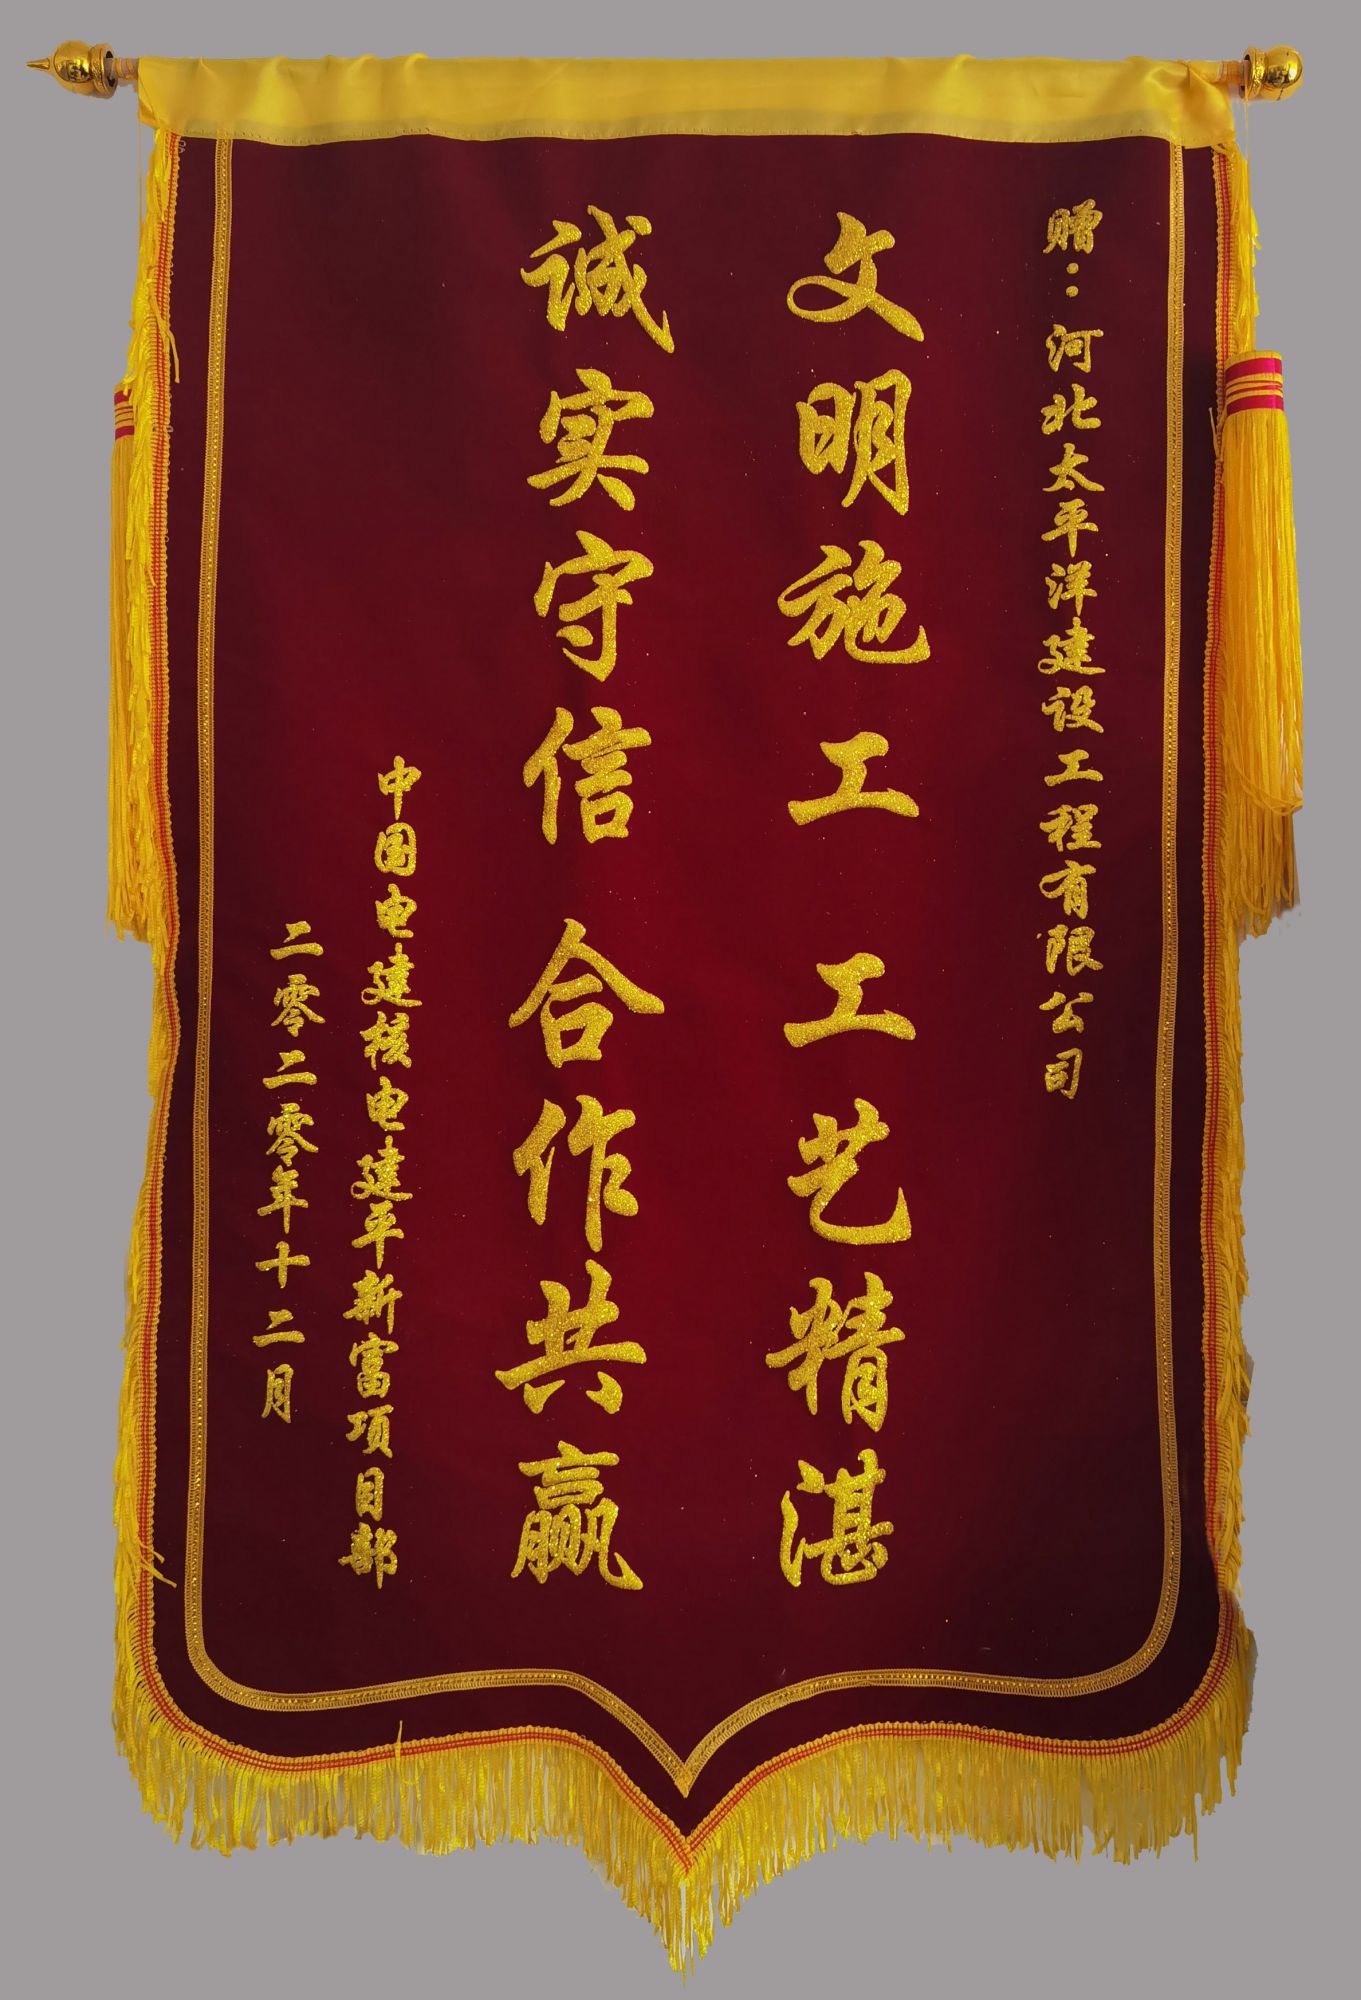 赠：河北太平洋建设工程有限公司
文明施工 工艺精湛
诚实守信 合作共赢
中国电建核电建平新富项目部
二零二零年十二月